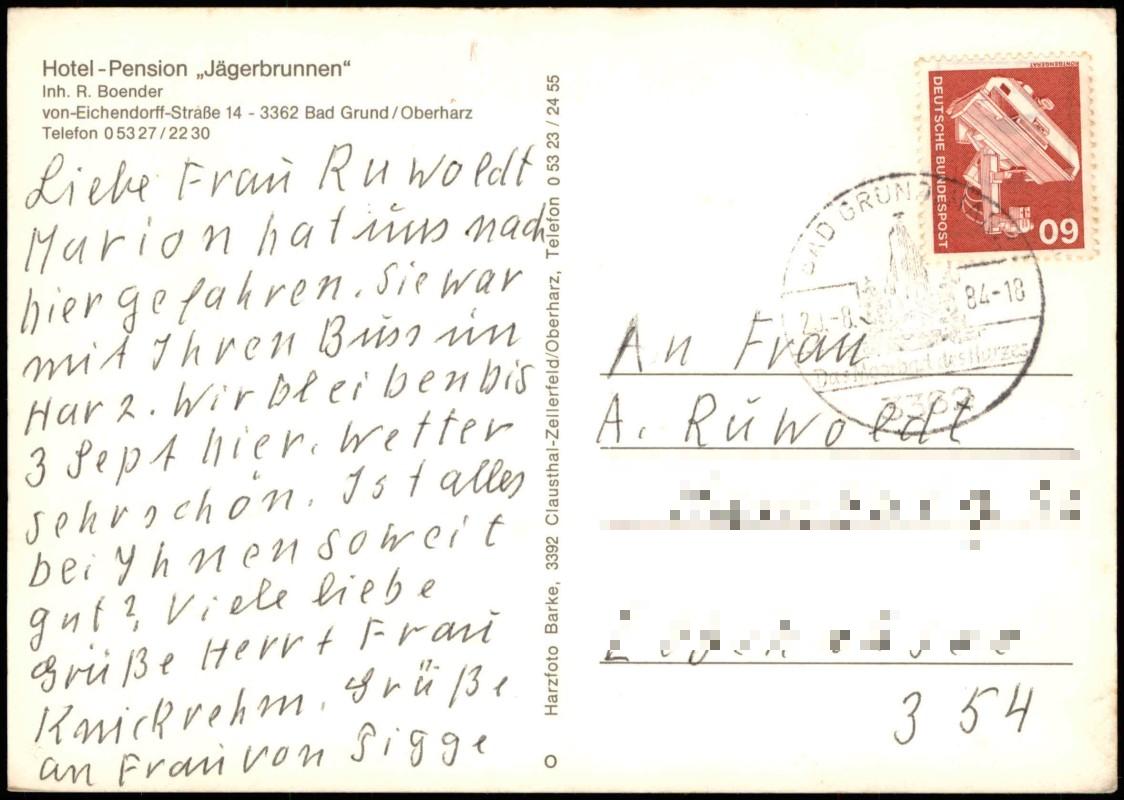 Hotel-Pension „Jägerbrunnen“
Inh. R. Boender
von-Eichendorff-Straße 14 - 3362 Bad Grund/Oberharz
Telefon 0 53 27 / 22 30
Liebe Frau Ruwoldt
Marion hat uns nach
hier gefahren. Sie war
mit Ihren Buss im
Harz. Wir bleiben bis
3 Sept hier. Wetter
sehr schön. Ist alles
bei Ihnen soweit
gut? Viele liebe
Grüße Herr + Frau
Knickrehm. Grüße
an Frau von Sigge
Harzfoto Barke, 3392 Clausthal-Zellerfeld/Oberharz, Telefon 0 53 23 / 24 55
RÖNTGENGERÄT
DEUTSCHE BUNDESPOST
60
BAD GRUND
-8. 84-18
3362
An Frau
A. Ruwoldt
354